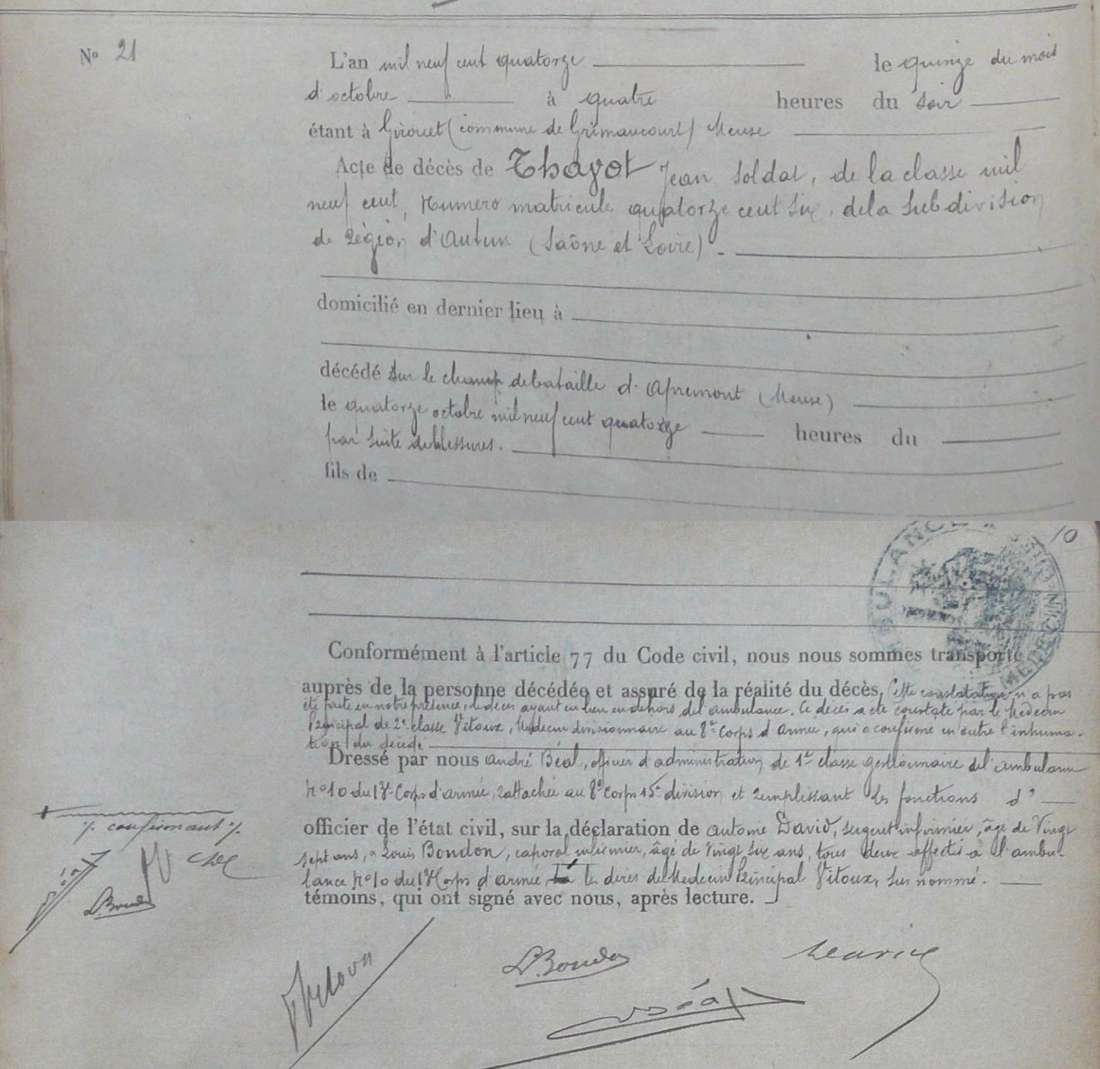 N° 21
L'an mil neuf cent quatorze le quinze du mois
d'octobre à quatre heures du soir
étant à Girouet (commune de Grimaucourt) Meuse
Acte de décès de Thayot Jean soldat, de la classe mil
neuf cent, Numero matricule quatorze cent six, de la subdivision
de région d'Autun (Saône et Loire).
domicilié en dernier lieu à
décédé sur le champ de bataille d'Apremont (Meuse)
le quatorze octobre mil neuf cent quatorze heures du
par suite de blessures.
fils de
10
AMBULANCE
MEDECIN
Conformément à l'article 77 du Code civil, nous nous sommes transporté
auprès de la personne décédée et assuré de la réalité du décès, Cette constatation n'a pas
été faite en notre présence, le décès ayant eu lieu en dehors de l'ambulance. Ce décès a été constaté par le Médecin
Principal de 2e classe Vitoux, Médecin divisionnaire au 8e Corps d'Armée, qui a confirmé en outre l'inhuma-
tion du décédé
Dressé par nous André Béal, officier d'administration de 1re classe gestionnaire de l'ambulance
n° 10 du 13e Corps d'armée, rattachée au 8e Corps 15e division et remplissant les fonctions d'
officier de l'état civil, sur la déclaration de Antoine David, sergent infirmier, âgé de Vingt
sept ans, Louis Bondon, caporal infirmier, âgé de Vingt six ans, tous deux affectés à l'ambu-
lance n° 10 du 13e Corps d'armée les dires du Médecin Principal Vitoux, sus nommé.
témoins, qui ont signé avec nous, après lecture.
confirmant
Béal
L. Bondon
Vitoux
L. Bondon
Béal